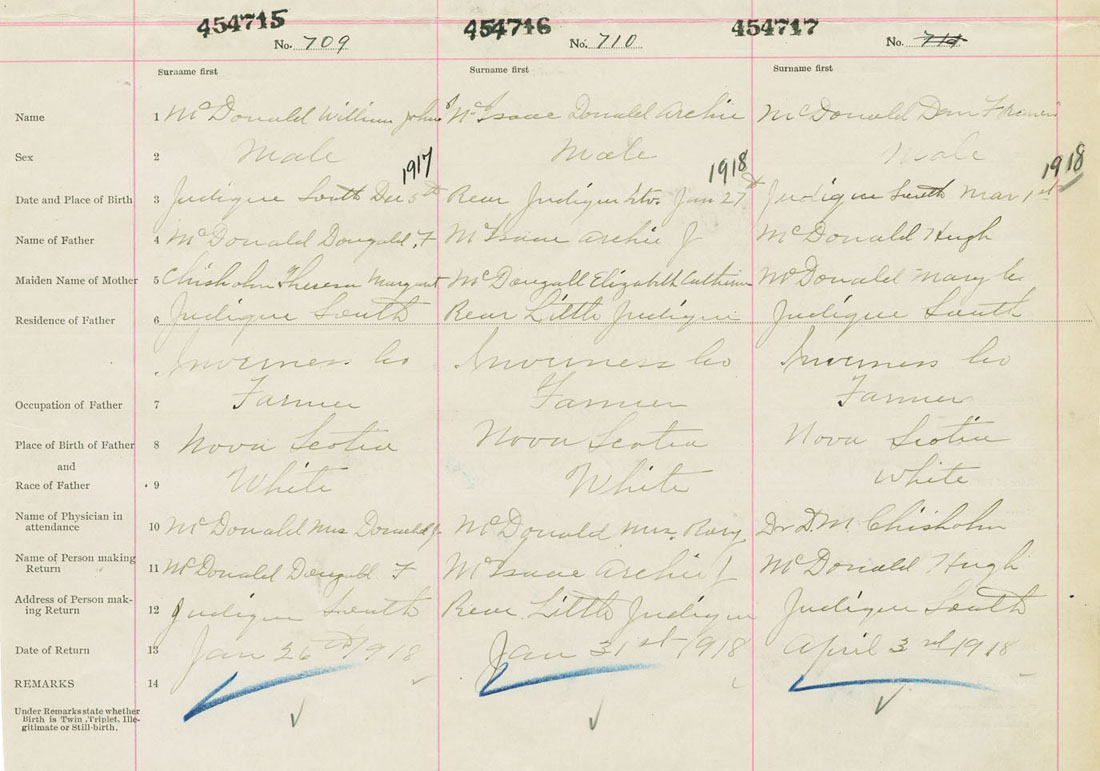 454715 454716 454717
No. 709 No. 710 No. 714
Surname first Surname first Surname first
Name 1 McDonald William John McIsaac Donald Archie McDonald Dan Francis
Sex 2 Male Male Male
1917 1918 1918
Date and Place of Birth 3 Judique South Dec 5th Rear Judique Jan 27th Judique South Mar 1st
Name of Father 4 McDonald Dougald F McIsaac Archie J McDonald Hugh
Maiden Name of Mother 5 Chisholm Theresa Margaret McDougall Elizabeth Catherine McDonald Mary C
Residence of Father 6 Judique South Rear Little Judique Judique South
Inverness Co Inverness Co Inverness Co
Occupation of Father 7 Farmer Farmer Farmer
Place of Birth of Father 8 Nova Scotia Nova Scotia Nova Scotia
and
Race of Father 9 White White White
Name of Physician in attendance 10 McDonald Mrs Donald McDonald Mrs Rory Dr D. M. Chisholm
Name of Person making Return 11 McDonald Dougald F McIsaac Archie J McDonald Hugh
Address of Person making Return 12 Judique South Rear Little Judique Judique South
Date of Return 13 Jan 26 1918 Jan 31st 1918 April 3rd 1918
REMARKS 14
Under Remarks state whether
Birth is Twin, Triplet, Ille-
gitimate or Still-birth.